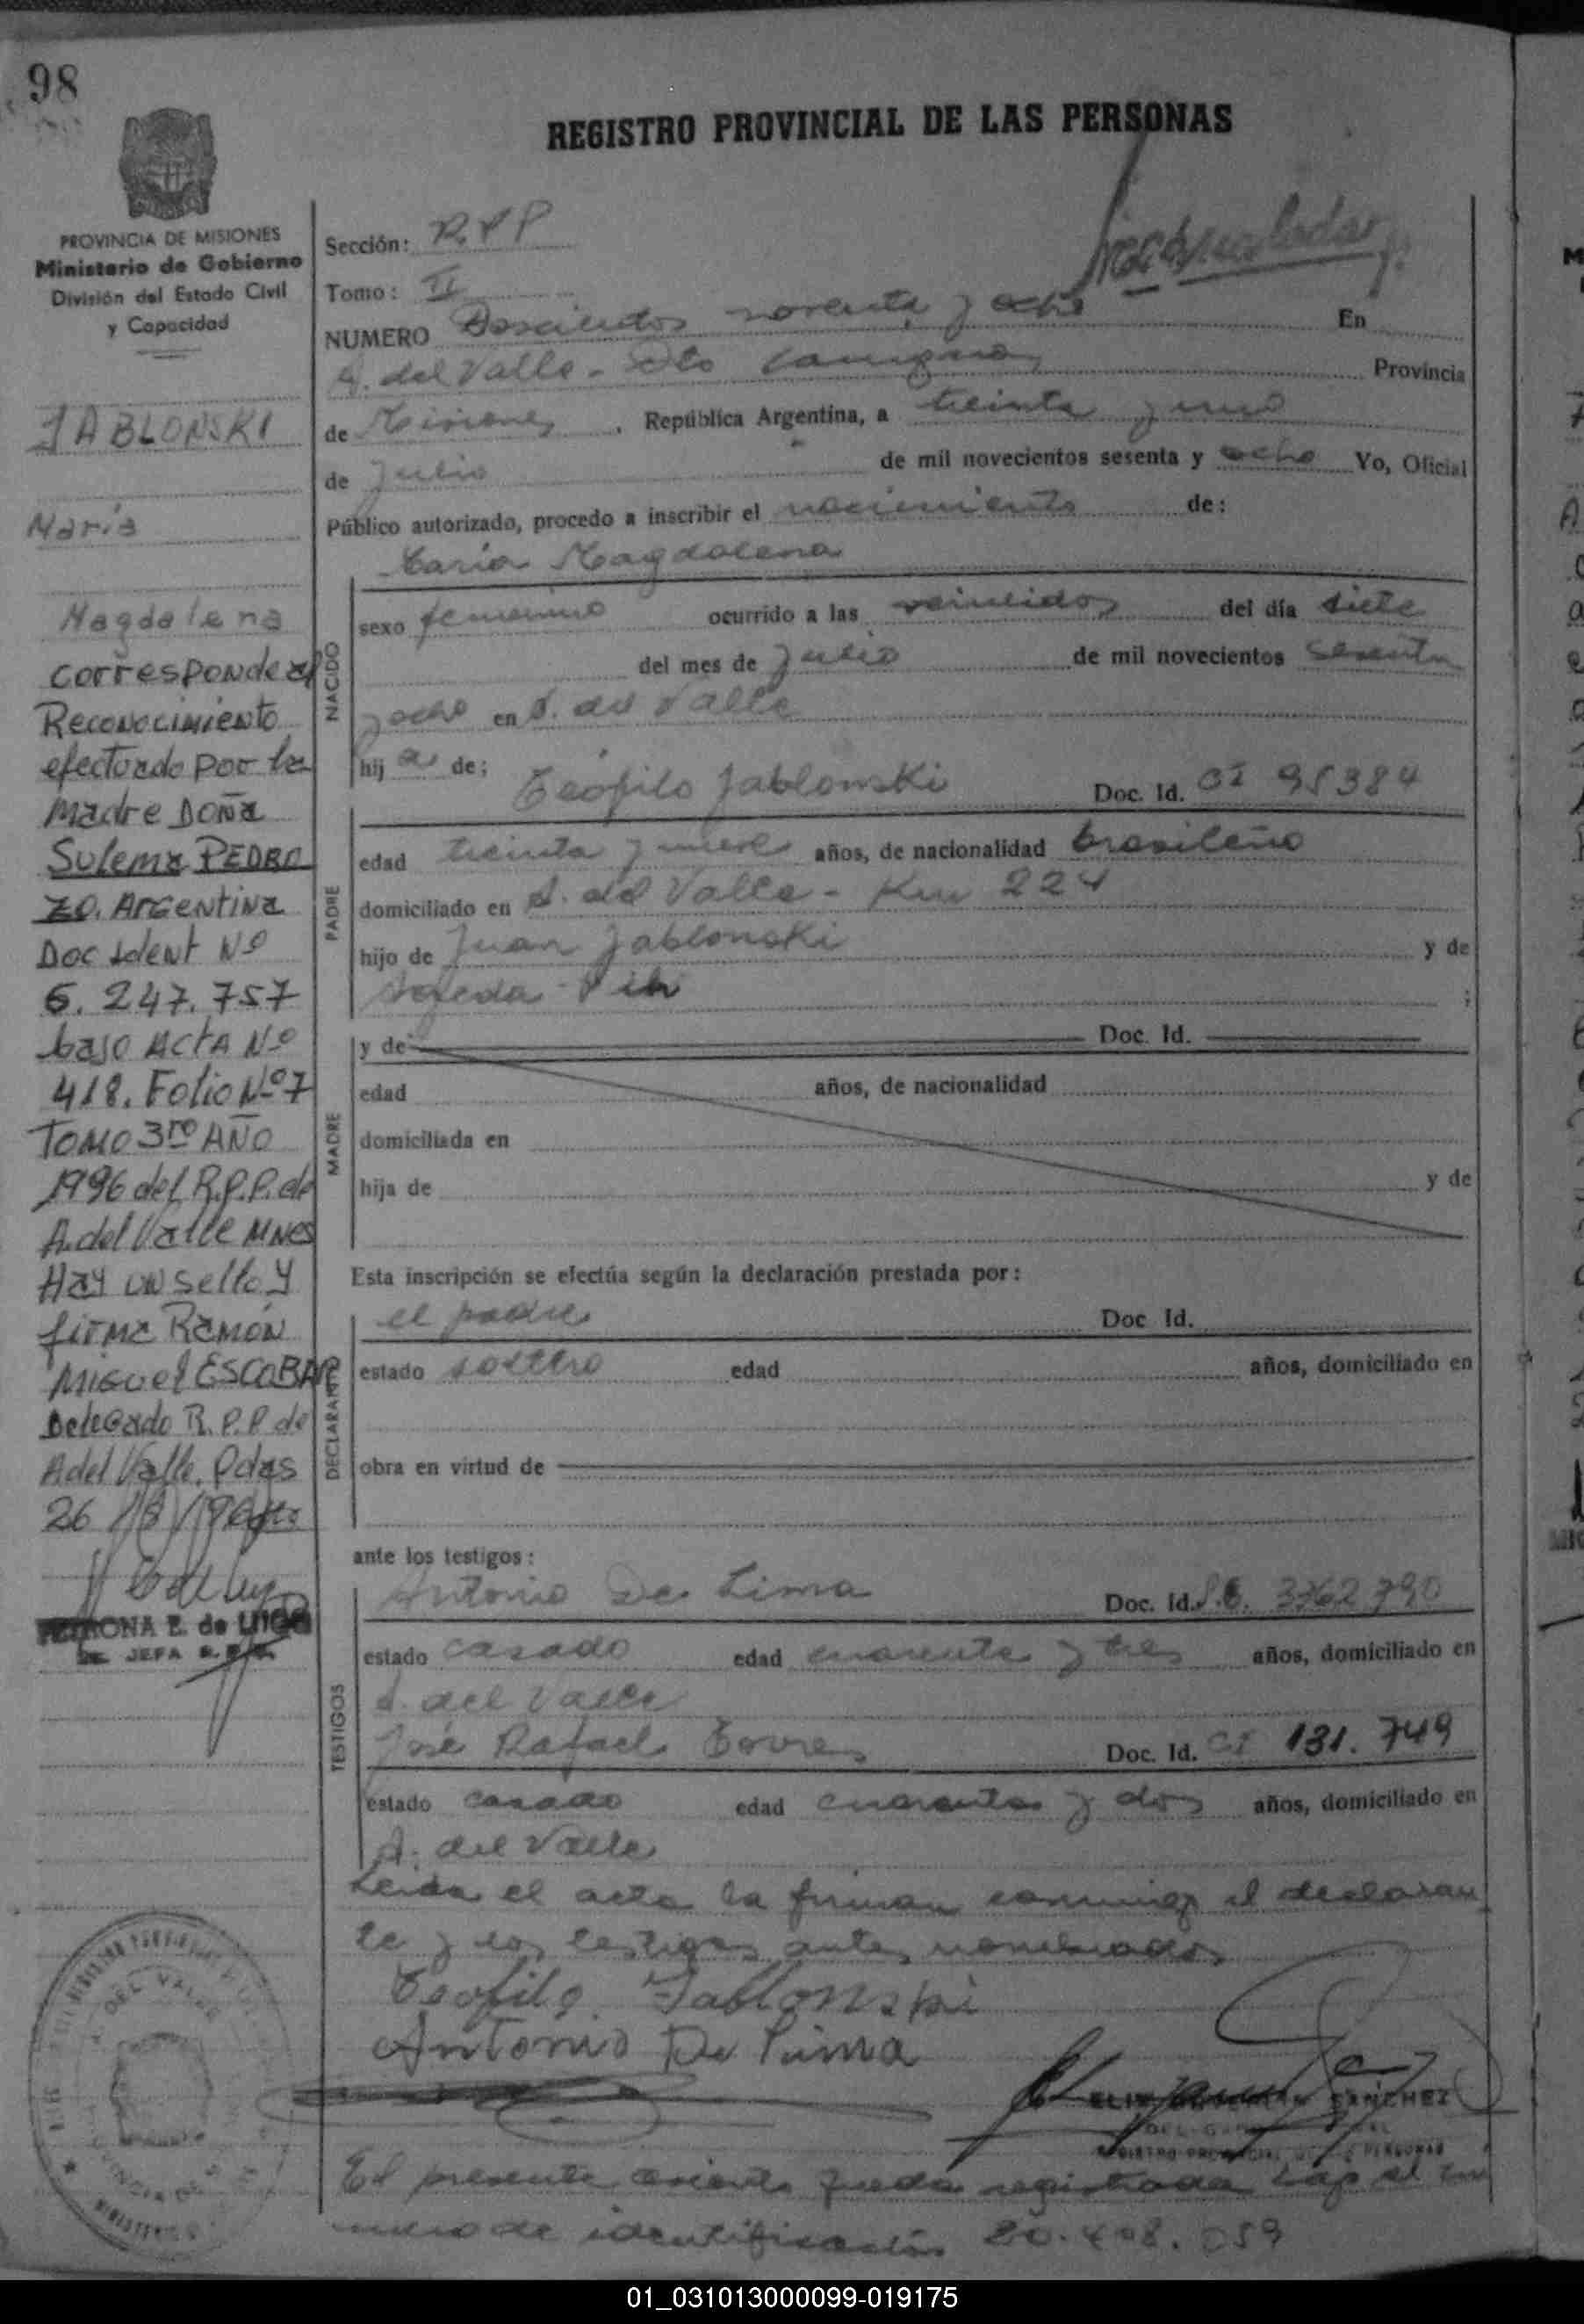 98
REGISTRO PROVINCIAL DE LAS PERSONAS
PROVINCIA DE MISIONES
Ministerio de Gobierno
División del Estado Civil
y Capacidad
JABLONSKI
María
Magdalena
corresponde al
Reconocimiento
efectuado por la
Madre Doña
Sulema PEDRO
ZO. Argentina
Doc Ident Nº
6.247.757
bajo Acta Nº
418. Folio Nº 7
Tomo 3ro Año
1996 del R.P.P. de
A. del Valle Mnes
Hay un sello y
firma Ramón
Miguel ESCOBAR
Delegado R.P.P de
A del Valle. Pdas
26
E. de LUGO
JEFA
Sección: R.P.P
Tomo: II
NUMERO Doscientos noventa y ocho En
A. del Valle - Dto Cainguas Provincia
de Misiones, República Argentina, a treinta y uno
de Julio de mil novecientos sesenta y ocho Yo, Oficial
Público autorizado, procedo a inscribir el nacimiento de:
María Magdalena
NACIDO
sexo femenino ocurrido a las veintidos del día siete
del mes de Julio de mil novecientos sesenta
y ocho en A. del Valle
hij a de; Teófilo Jablonski Doc. Id. CI 95384
PADRE
edad treinta y nueve años, de nacionalidad brasileño
domiciliado en A. del Valle - Km 224
hijo de Juan Jablonski y de
;
MADRE
y de Doc. Id.
edad años, de nacionalidad
domiciliada en
hija de y de
Esta inscripción se efectúa según la declaración prestada por:
DECLARANTE
el padre Doc Id.
estado soltero edad años, domiciliado en
obra en virtud de
ante los testigos:
TESTIGOS
Antonio De Lima Doc. Id. 3762790
estado casado edad cuarenta y tres años, domiciliado en
A. del Valle
José Rafael Torres Doc. Id. CI 131.749
estado casado edad cuarenta y dos años, domiciliado en
A. del Valle
Leida el acta la firman conmigo el declaran
te y los testigos antes nombrados
Teofilo Jablonski
Antonio De Lima
SANCHEZ
El presente asiento queda registrada bajo el nu
mero de identificación 20.408.059
01_031013000099-019175